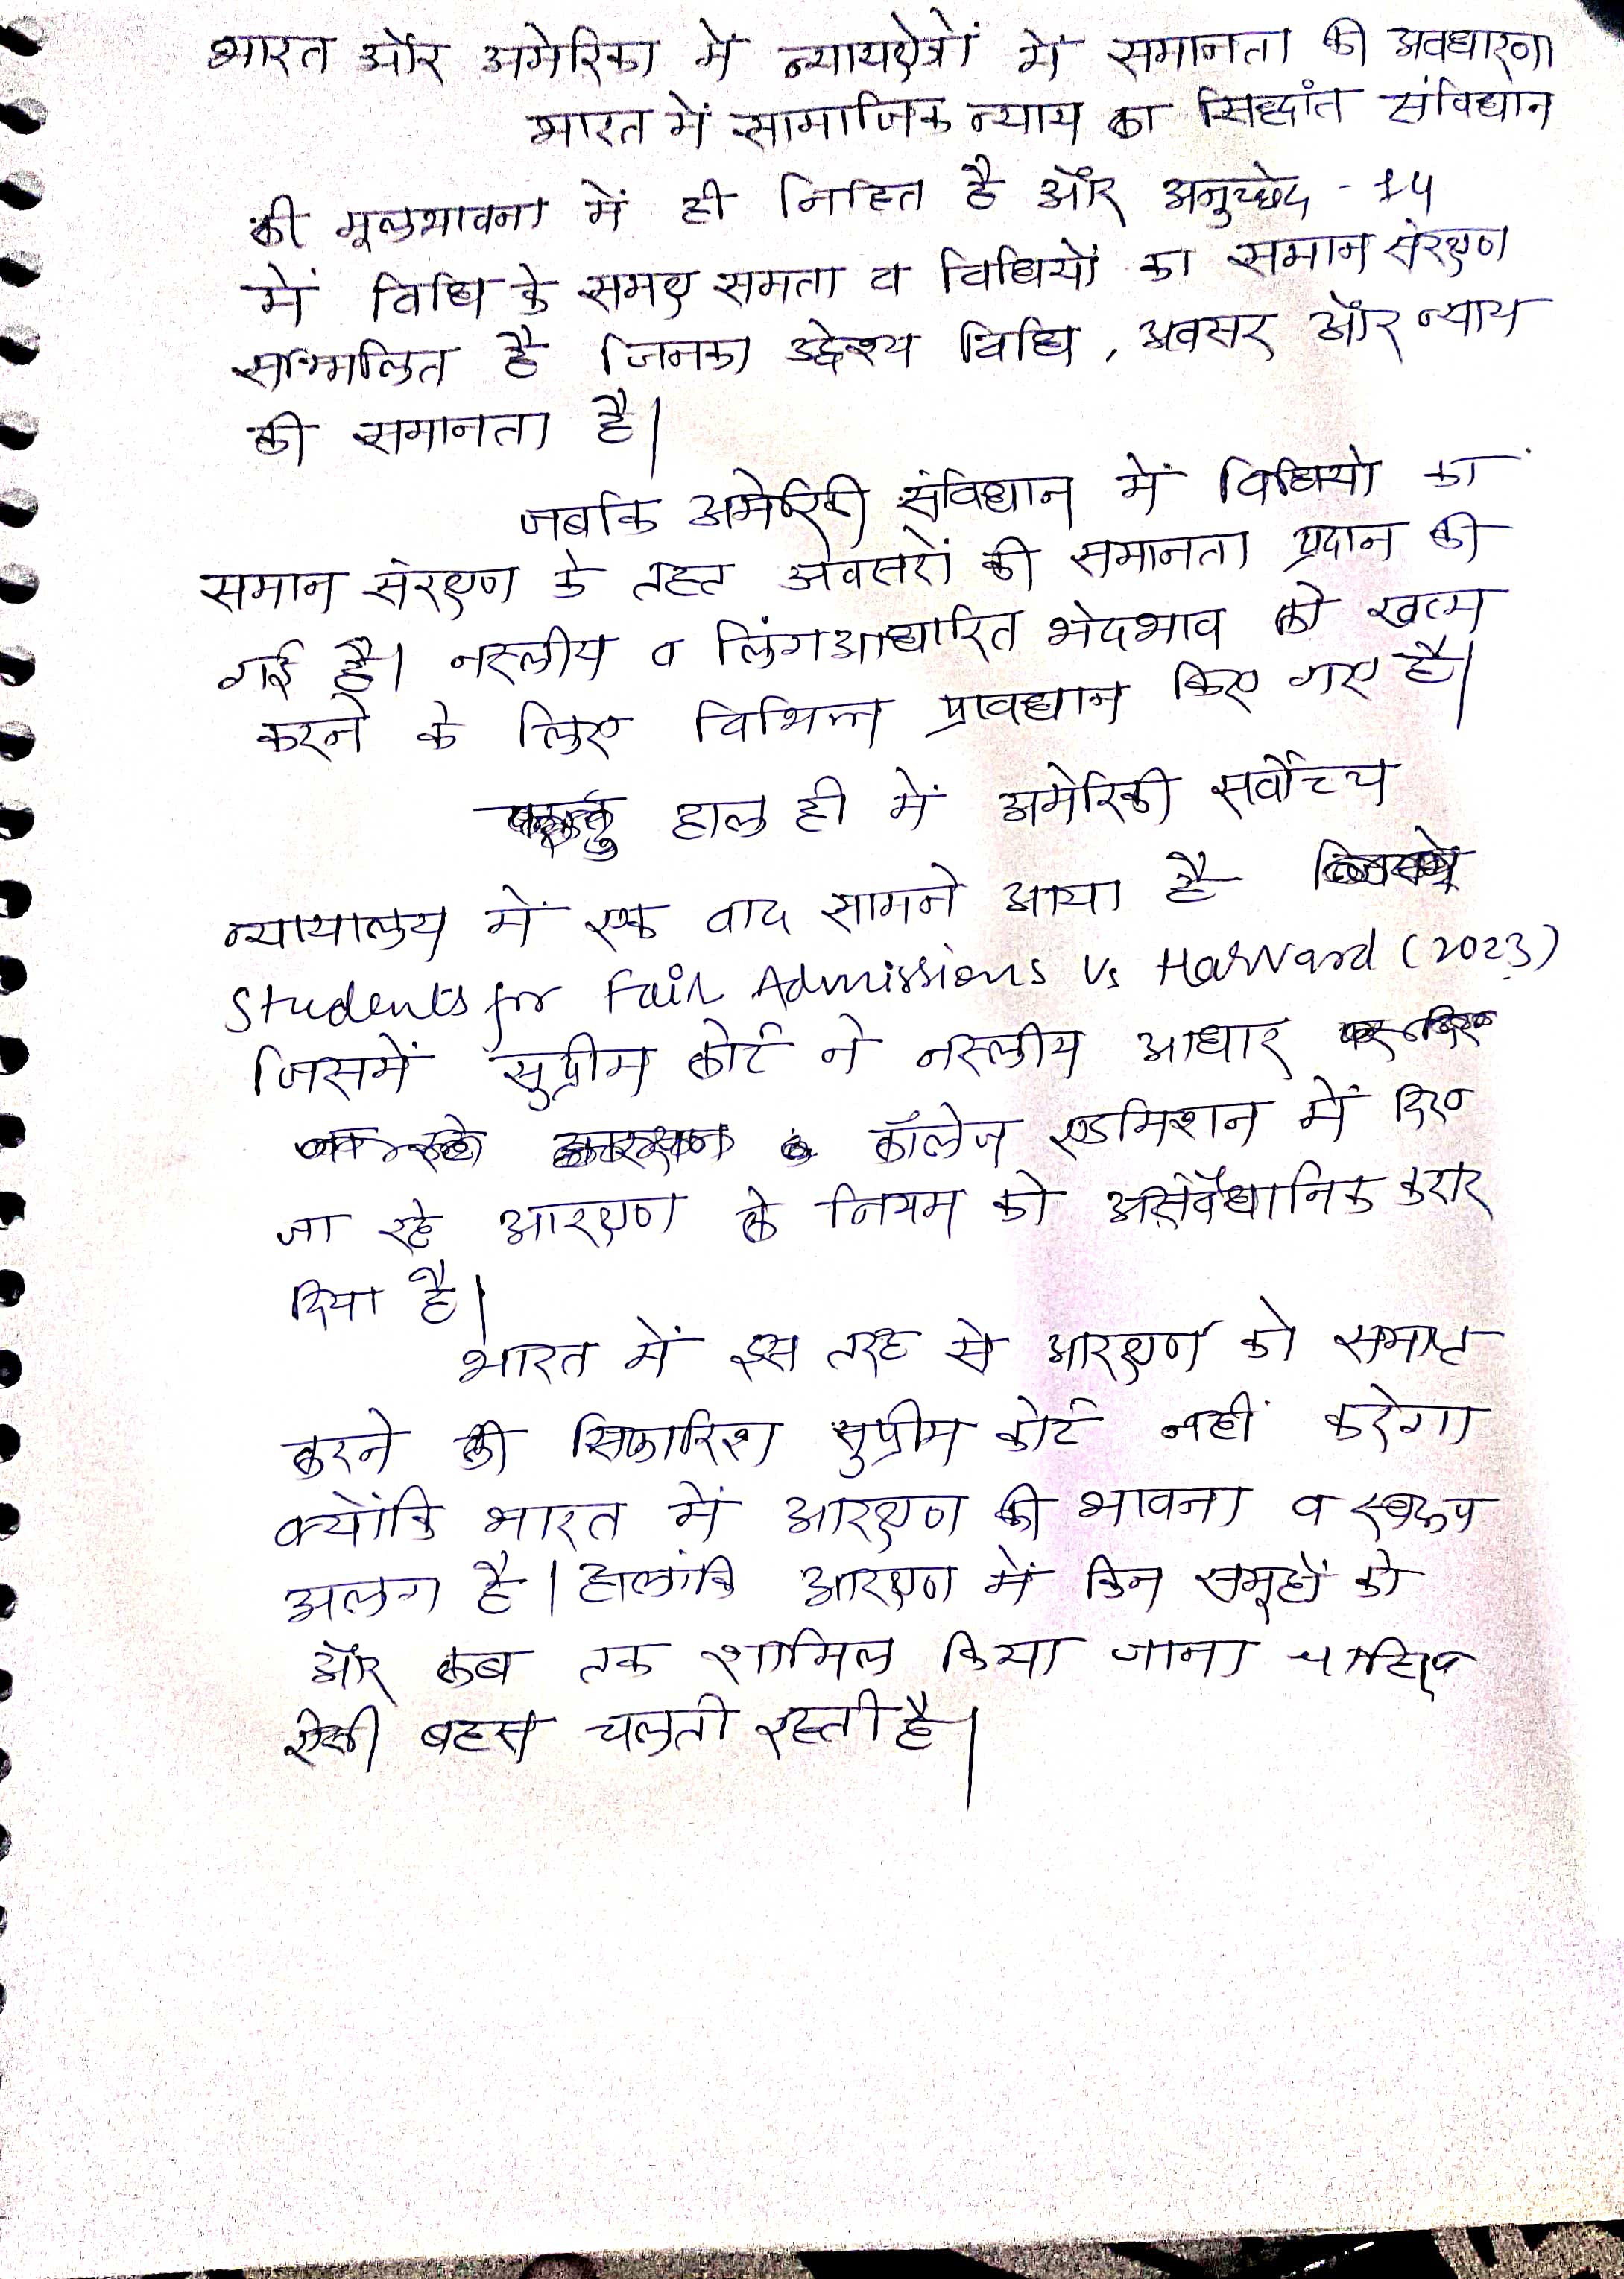 भारत और अमेरिका में न्यायक्षेत्रों में समानता की अवधारणा
भारत में सामाजिक न्याय का सिद्धांत संविधान
की मूलभावना में ही निहित है और अनुच्छेद - 14
में विधि के समक्ष समता व विधियों का समान संरक्षण
सम्मिलित है जिनका उद्देश्य विधि, अवसर और न्याय
की समानता है।
जबकि अमेरिकी संविधान में विधियों का
समान संरक्षण के तहत अवसरों की समानता प्रदान की
गई है। नस्लीय व लिंगआधारित भेदभाव को खत्म
करने के लिए विभिन्न प्रावधान किए गए है।
हाल ही में अमेरिकी सर्वोच्च
न्यायालय में एक वाद सामने आया है
Students for Fair Admissions Vs Harvard (2023)
जिसमें सुप्रीम कोर्ट ने नस्लीय आधार
कॉलेज एडमिशन में दिए
जा रहे आरक्षण के नियम को असंवैधानिक करार
दिया है।
भारत में इस तरह से आरक्षण को समाप्त
करने की सिफारिश सुप्रीम कोर्ट नहीं करेगा
क्योंकि भारत में आरक्षण की भावना व स्वरूप
अलग है। हालांकि आरक्षण में किन समूहों को
और कब तक शामिल किया जाना चाहिए
ऐसी बहस चलती रहती है।